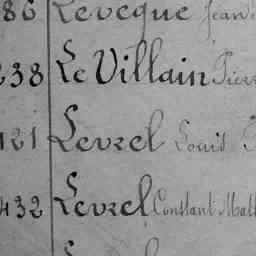 86 Leveque Jean
238 Le Villain Pierr
121 Levrel Louis
432 Levrel Constant Math